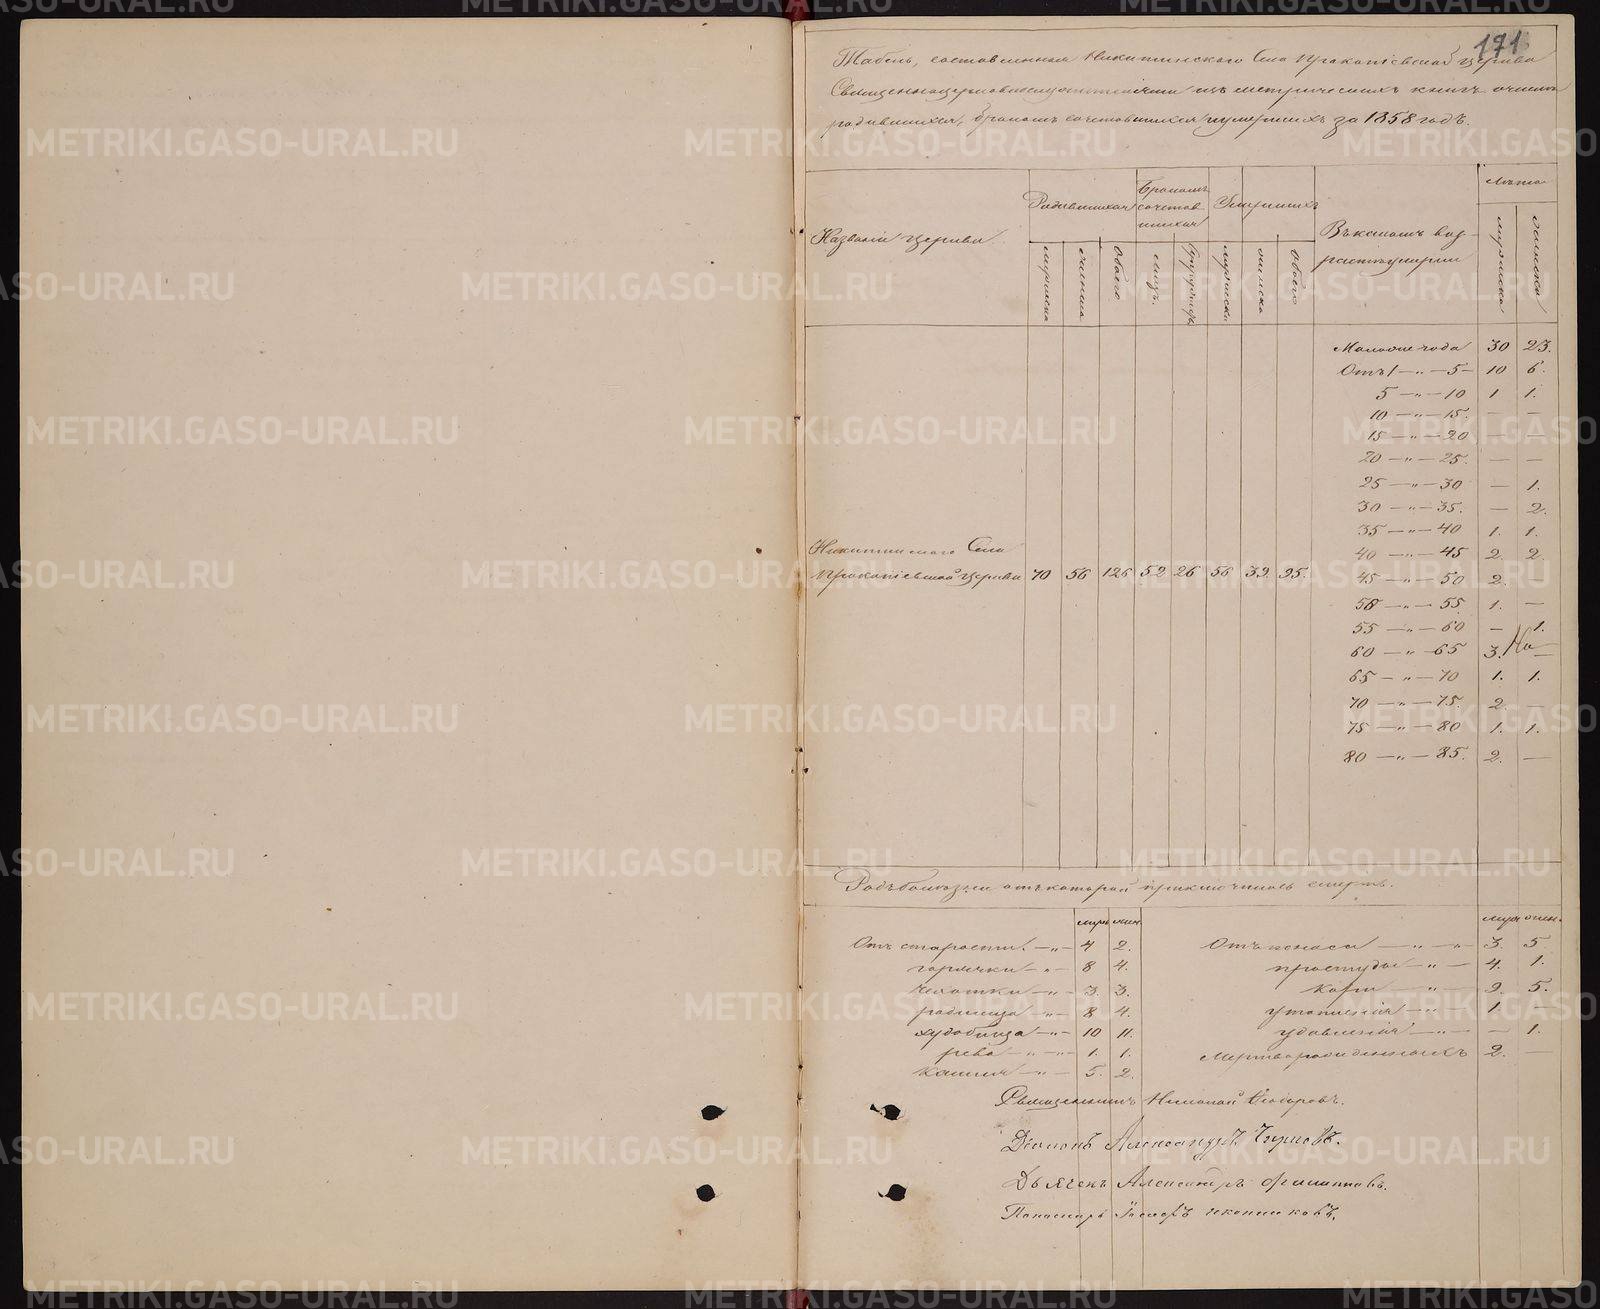 171
Табель, составленная Никитинского Села Прокопіевской Церкви
Священноцерковнослужителями изъ метрическихъ книгъ о числѣ
родившихся, бракомъ сочетавшихся и умершихъ за 1858 годъ.
Названіе церкви
Родившихся
Бракомъ сочетавшихся
Умершихъ
Въ какомъ возрастѣ умерли
Мужеска
Женска
Обоего
Лицъ.
Мужеска
Женска
Обоего
Мужеска
Женска
Моложе года 30 23.
Отъ 1 — „ — 5 — 10 6.
5 — „ — 10 1 1.
10 — „ — 15. — —
15 — „ — 20 — —
20 — „ — 25. — —
25 — „ — 30 — 1.
30 — „ — 35. — 2.
35 — „ — 40 1. 1.
40 — „ — 45 2. 2.
Никитинского Села
Прокопіевской Церкви 70 56 126 52 26 56 39. 95. 45 — „ — 50 2. —
50 — „ — 55 1. —
55 — „ — 60 — 1.
60 — „ — 65 3. —
65 — „ — 70 1. 1.
70 — „ — 75. 2. —
75 — „ — 80 1. 1.
80 — „ — 85. 2. —
Родъ болѣзни отъ которой приключилась смерть.
муж. жен. муж. жен.
Отъ старости. — „ — 4 2. Отъ поноса — „ — 3. 5.
горячки — „ — 8 4. простуды — „ — 4. 1.
чахотки — „ — 3. 3. кори — „ — 9. 5.
родимца — „ — 8 4. утопленія — „ — 1. —
худобища — „ — 10 11. удавленія — „ — — 1.
рева — „ — 1. 1. Мертворожденныхъ 2. —
Кашля — „ — 5. 2.
Священникъ Николай Ѳеодоровъ.
Діаконъ Александръ
Дьячекъ Александръ
Пономарь Іосифъ Иконниковъ.